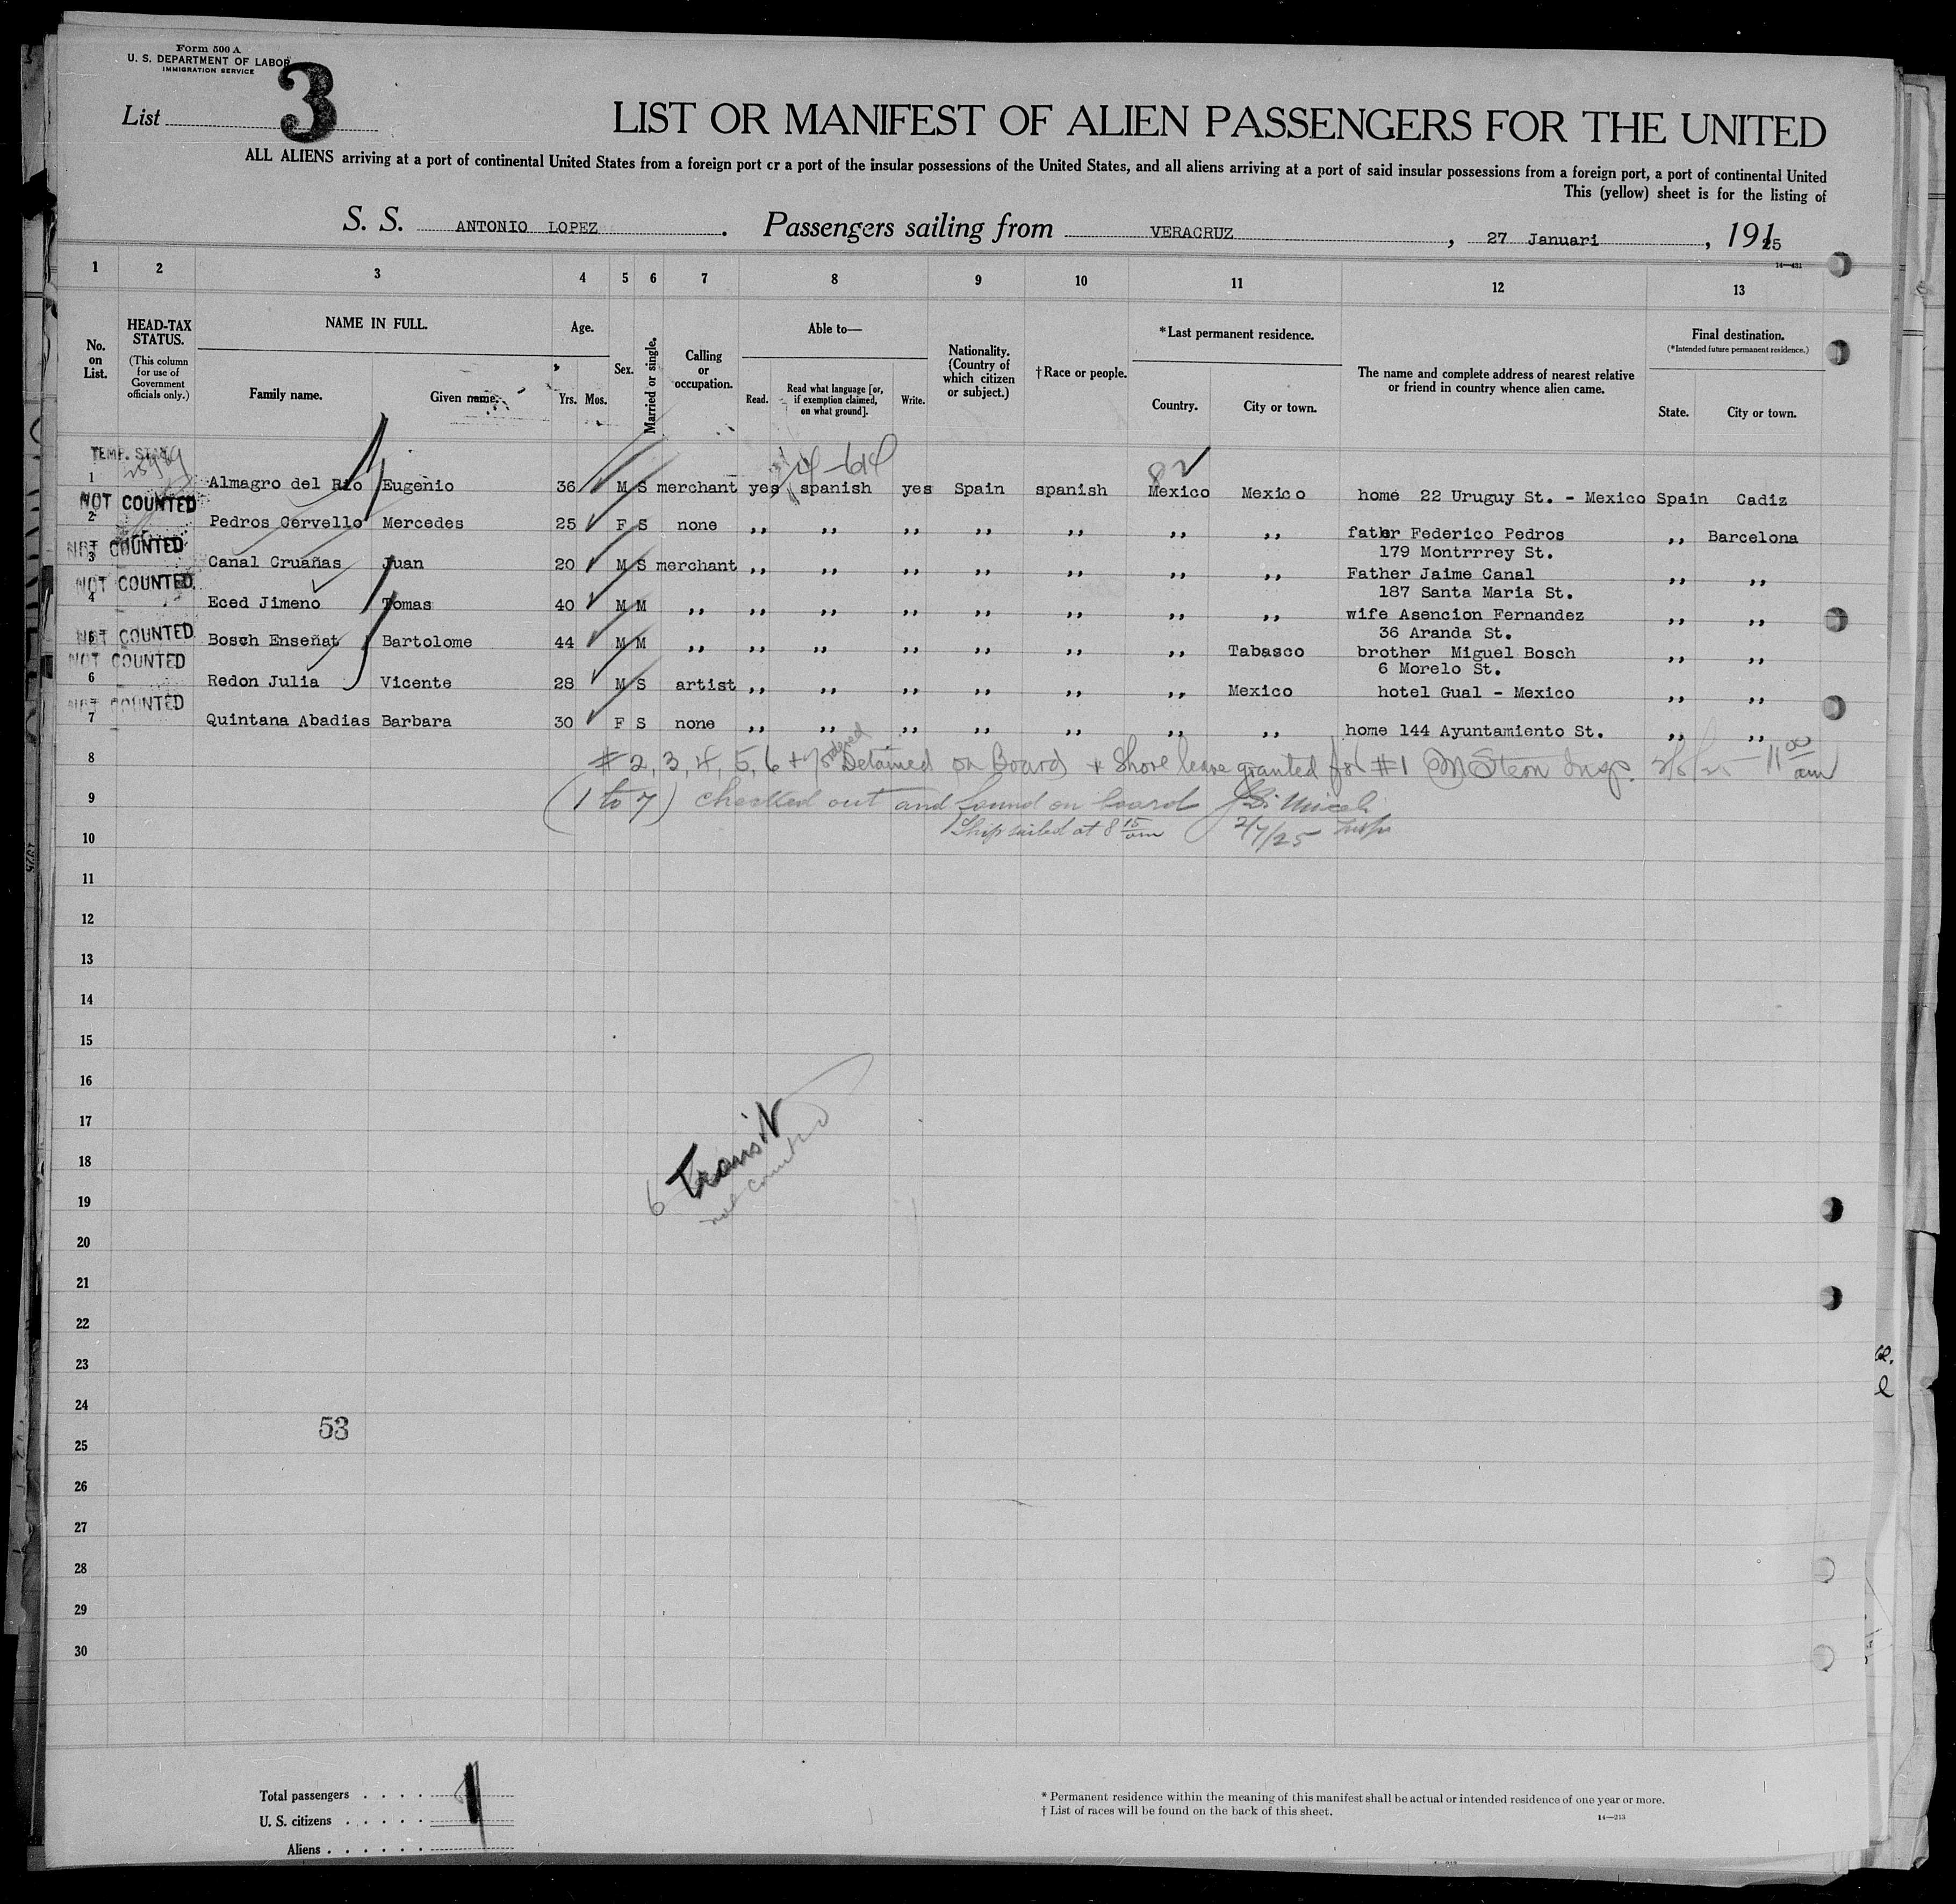 Form 500 A
U. S. DEPARTMENT OF LABOR
IMMIGRATION SERVICE
List 3
LIST OR MANIFEST OF ALIEN PASSENGERS FOR THE UNITED
ALL ALIENS arriving at a port of continental United States from a foreign port or a port of the insular possessions of the United States, and all aliens arriving at a port of said insular possessions from a foreign port, a port of continental United
This (yellow) sheet is for the listing of
S. S. ANTONIO LOPEZ . Passengers sailing from VERACRUZ , 27 Januari , 19125
14—431
1 2 3 4 5 6 7 8 9 10 11 12 13
No. on List.
HEAD-TAX STATUS.
(This column for use of Government officials only.)
NAME IN FULL.
Family name. Given name.
Age.
Yrs. Mos.
Sex.
Married or single.
Calling or occupation.
Able to—
Read. Read what language [or, if exemption claimed, on what ground]. Write.
Nationality. (Country of which citizen or subject.)
†Race or people.
*Last permanent residence.
Country. City or town.
The name and complete address of nearest relative or friend in country whence alien came.
Final destination.
(*Intended future permanent residence.)
State. City or town.
TEMP. STAY
4-614
82
1 Almagro del Rio Eugenio 36 M S merchant yes spanish yes Spain spanish Mexico Mexico home 22 Uruguy St. - Mexico Spain Cadiz
NOT COUNTED
2 Pedros Cervello Mercedes 25 F S none ,, ,, ,, ,, ,, ,, ,, father Federico Pedros ,, Barcelona
179 Montrrrey St.
NOT COUNTED
3 Canal Cruañas Juan 20 M S merchant ,, ,, ,, ,, ,, ,, ,, Father Jaime Canal ,, ,,
187 Santa Maria St.
NOT COUNTED
4 Eced Jimeno Tomas 40 M M ,, ,, ,, ,, ,, ,, ,, ,, wife Asencion Fernandez ,, ,,
36 Aranda St.
NOT COUNTED
5 Bosch Enseñat Bartolome 44 M M ,, ,, ,, ,, ,, ,, ,, Tabasco brother Miguel Bosch ,, ,,
6 Morelo St.
NOT COUNTED
6 Redon Julia Vicente 28 M S artist ,, ,, ,, ,, ,, ,, Mexico hotel Gual - Mexico ,, ,,
NOT COUNTED
7 Quintana Abadias Barbara 30 F S none ,, ,, ,, ,, ,, ,, ,, home 144 Ayuntamiento St. ,, ,,
8 # 2, 3, 4, 5, 6 + 7 ordered Detained on Board + Shore leave granted for #1 Insp. 2/5/25 11 00 am
9 (1 to 7) checked out and found on board
Ship sailed at 8 15 am 2/7/25 Insp
10
11
12
13
14
15
16
17
18
19
20
21
22
23
24
25
26
27
28
29
30
6 Transit
not counted
53
Total passengers . . . .
U. S. citizens . . . . .
Aliens . . . . . .
* Permanent residence within the meaning of this manifest shall be actual or intended residence of one year or more.
† List of races will be found on the back of this sheet.
14—213